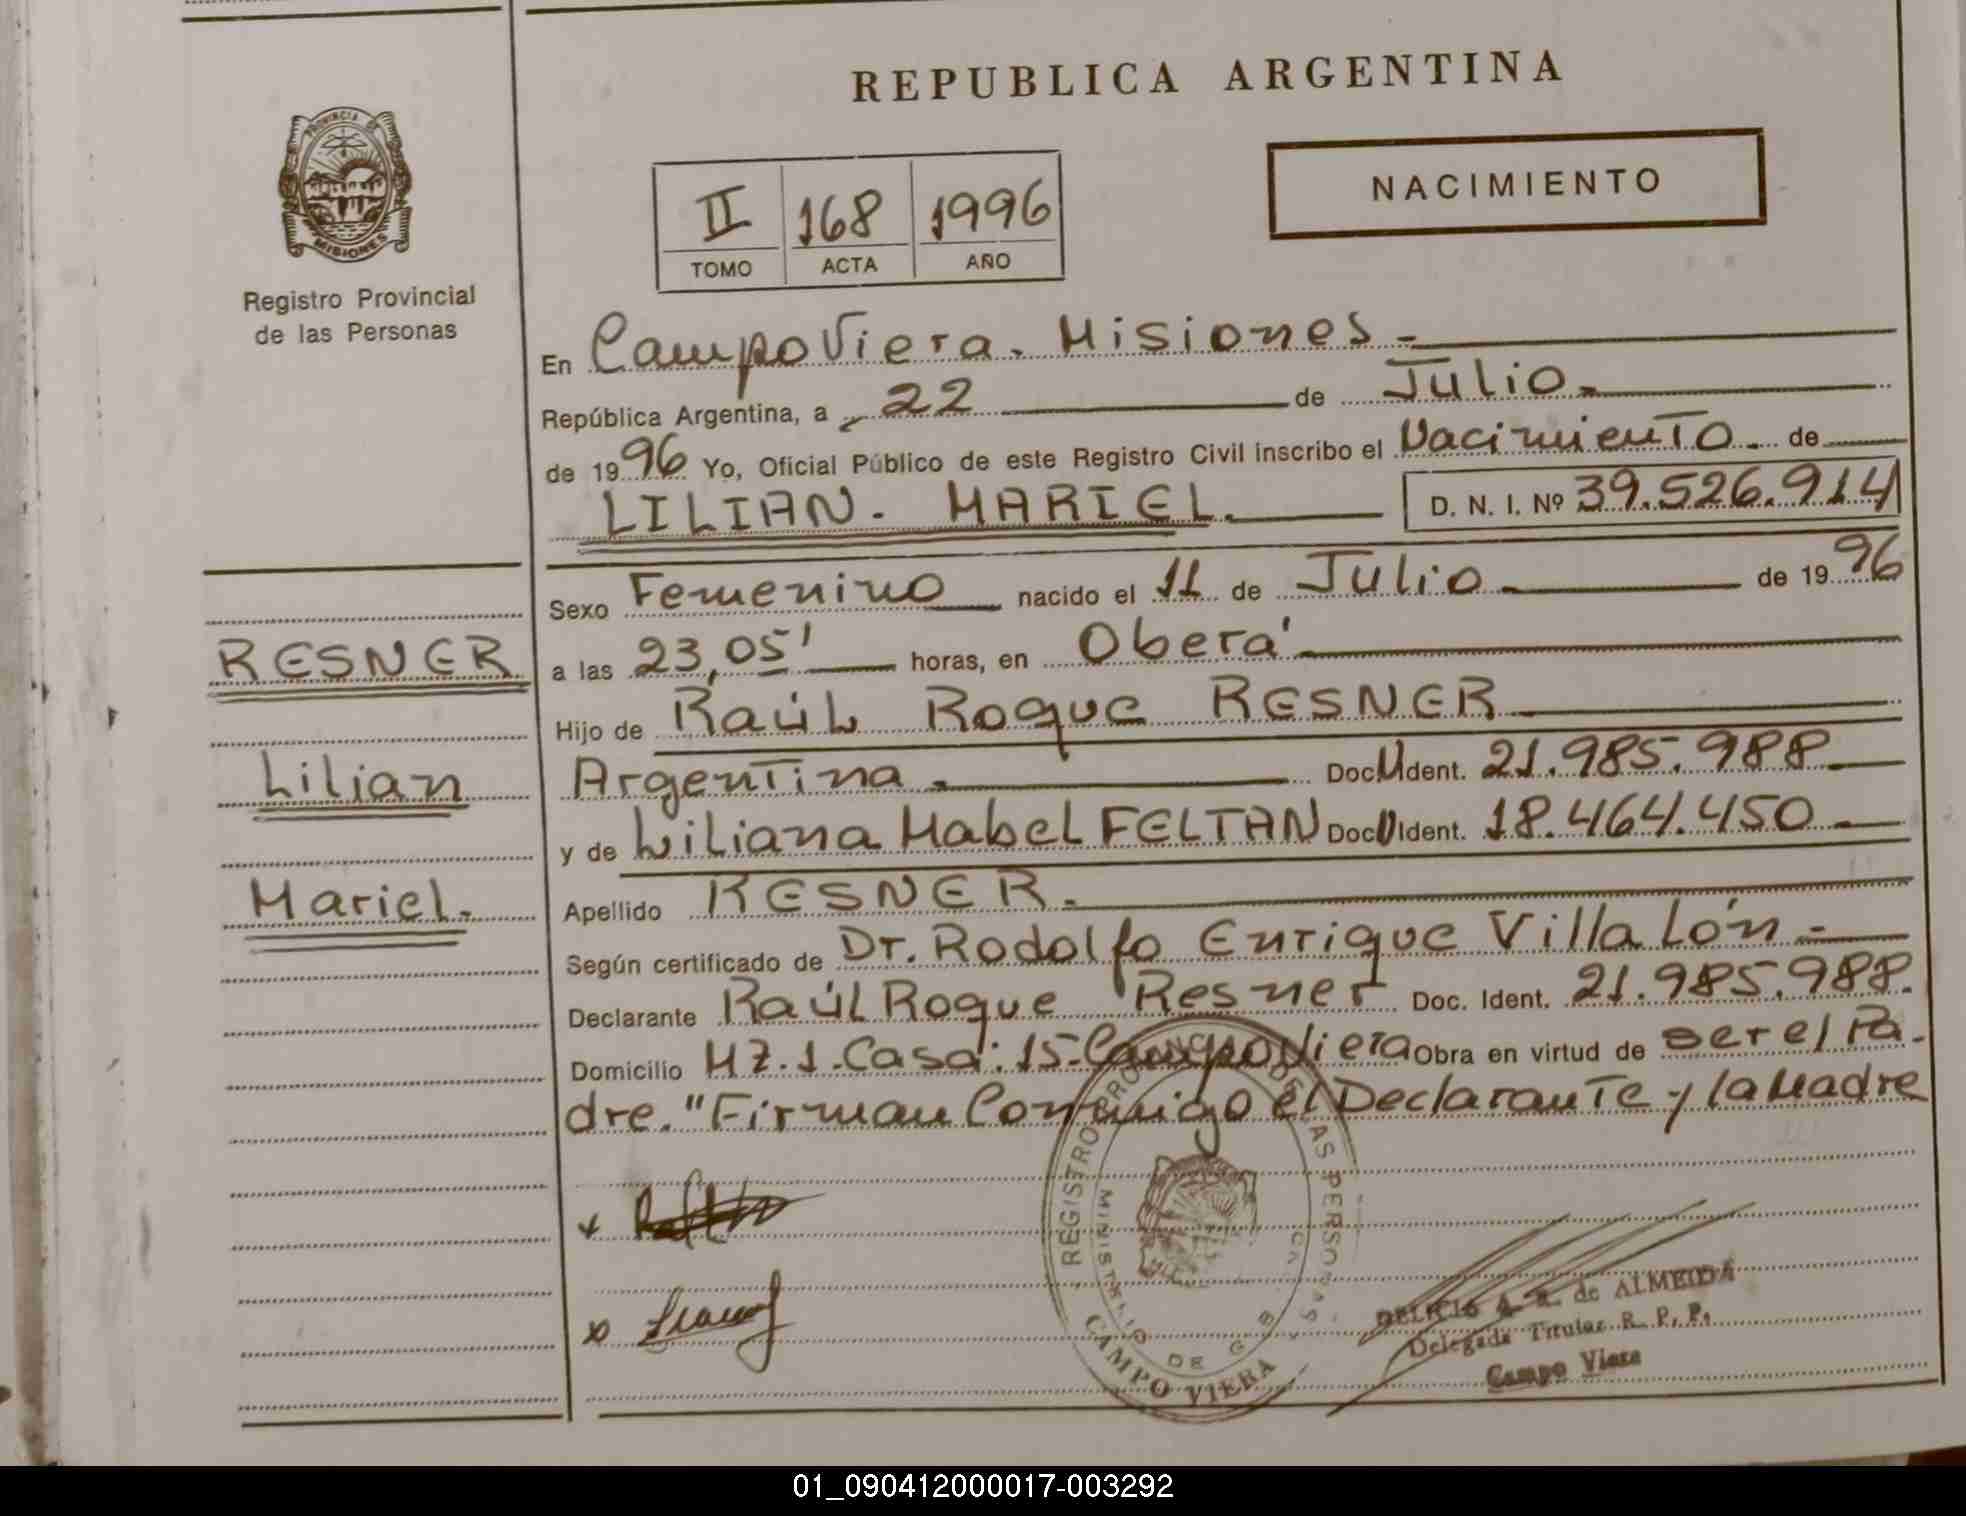 REPUBLICA ARGENTINA
PROVINCIA DE
MISIONES
Registro Provincial
de las Personas
NACIMIENTO
II 168 1996
TOMO ACTA AÑO
En Campo Viera. Misiones.-
República Argentina, a 22 de Julio.-
de 1996 Yo, Oficial Público de este Registro Civil inscribo el Nacimiento. de
LILIAN. MARIEL. D. N. I. Nº 39.526.914
Sexo Femenino nacido el 11 de Julio de 1996
RESNER
a las 23,05' horas, en Oberá
Hijo de Raúl Roque RESNER
Lilian
Argentina. Doc. Ident. 21.985.988
y de Liliana Mabel FELTAN Doc. Ident. 18.464.450.
Mariel.
Apellido RESNER.
Según certificado de Dr. Rodolfo Enrique Villalón.-
Declarante Raúl Roque Resner Doc. Ident. 21.985.988.
Domicilio MZ.1.Casa:15-Campo Viera Obra en virtud de ser el Pa-
dre. "Firman Conmigo el Declarante y la Madre
REGISTRO PROVINCIAL DE LAS PERSONAS
MINISTERIO DE G
CAMPO VIERA
DELICIO A. R. de ALMEIDA
Delegada Titular R. P. P.
Campo Viera
01_090412000017-003292